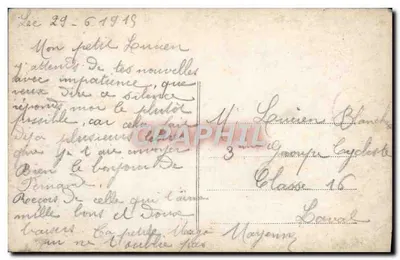 Le 29-6-1915
Mon petit Lucien
j'attends de tes nouvelles
avec impatience, que
veux dire ce silence
réponds moi le plutôt
possible, car cela fait
déjà plusieurs
que je t'ai envoyer
Bien le bonjour de
Fernand.
Reçois de celle que t'aime
mille bons et doux
baisers. Ta petite
qui ne t'oublie pas
M Lucien Blanch
3ème Groupe Cycliste
Classe 16
Laval
Mayenne
DELCAMPE